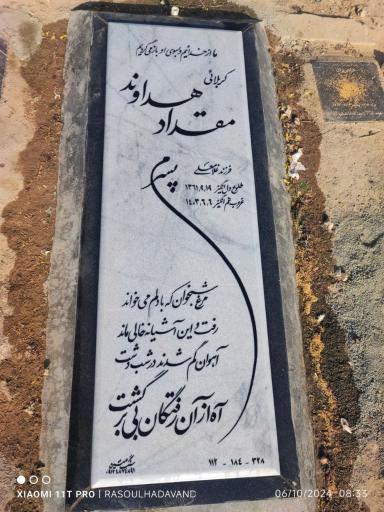 ما از خدائیم و بسوی او باز می گردیم
کربلائی
مقداد هداوند
فرزند غلامعلی
طلوع دل انگیز ۱۳۶۱.۹.۱۹
غروب غم انگیز ۱۴۰۳.۶.۶
پسرم
مرغ شبخوان که با دلم می خواند
رفت و این آشیانه خالی ماند
آهوان گم شدند در شب دشت
آه از آن رفتگان بی برگشت
۳۲۸ - ۱۸۴ - ۱۱۲
XIAOMI 11T PRO | RASOULHADAVAND
06/10/2024 08:33